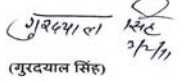 गुरदयाल सिंह
3/2/11
(गुरदयाल सिंह)